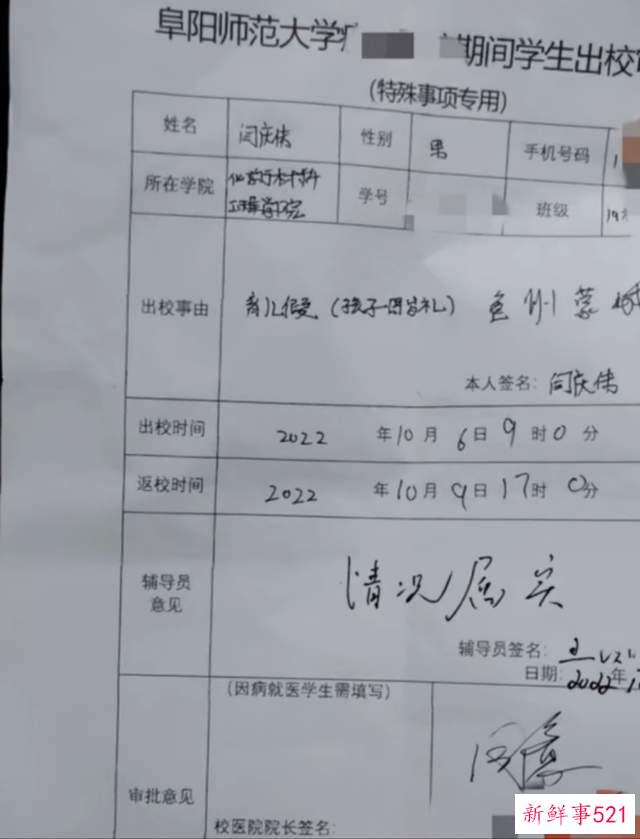 阜阳师范大学 期间学生出校
(特殊事项专用)
姓名 闫庆伟 性别 男 手机号码 1
所在学院 化学与材料 学号 班级
工程学院
出校事由 育儿假 (孩子周岁礼)
本人签名: 闫庆伟
出校时间 2022 年 10 月 6 日 9 时 0 分
返校时间 2022 年 10 月 9 日 17 时 0 分
情况属实
辅导员
意见
辅导员签名:
日期: 2022 年
(因病就医学生需填写)
审批意见
校医院院长签名:
新鲜事521